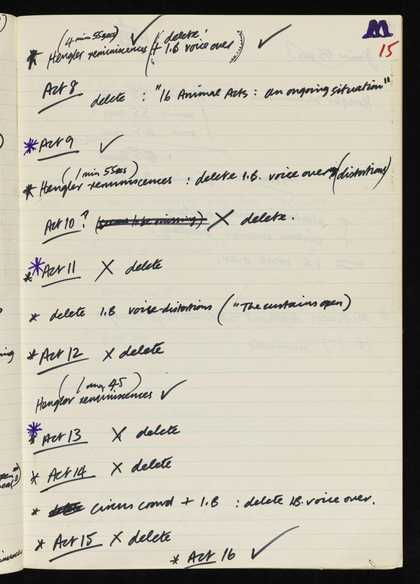 M
15
(4 min 55secs) (delete!
* Hengler reminiscences + I.B voice over)
Act 8
delete : "16 Animal Acts : an ongoing situation"
* Act 9
(1 min 55secs)
* Hengler reminiscences : delete I.B. voice over (distortions)
Act 10? (seems to be missing) X delete.
* Act 11 X delete
* delete I.B voice distortions ("The curtains open)
* Act 12 X delete
(1 min 45)
Hengler reminiscences
* Act 13 X delete
* Act 14 X delete
* Circus crowd + I.B : delete I.B. voice over.
* Act 15 X delete
* Act 16